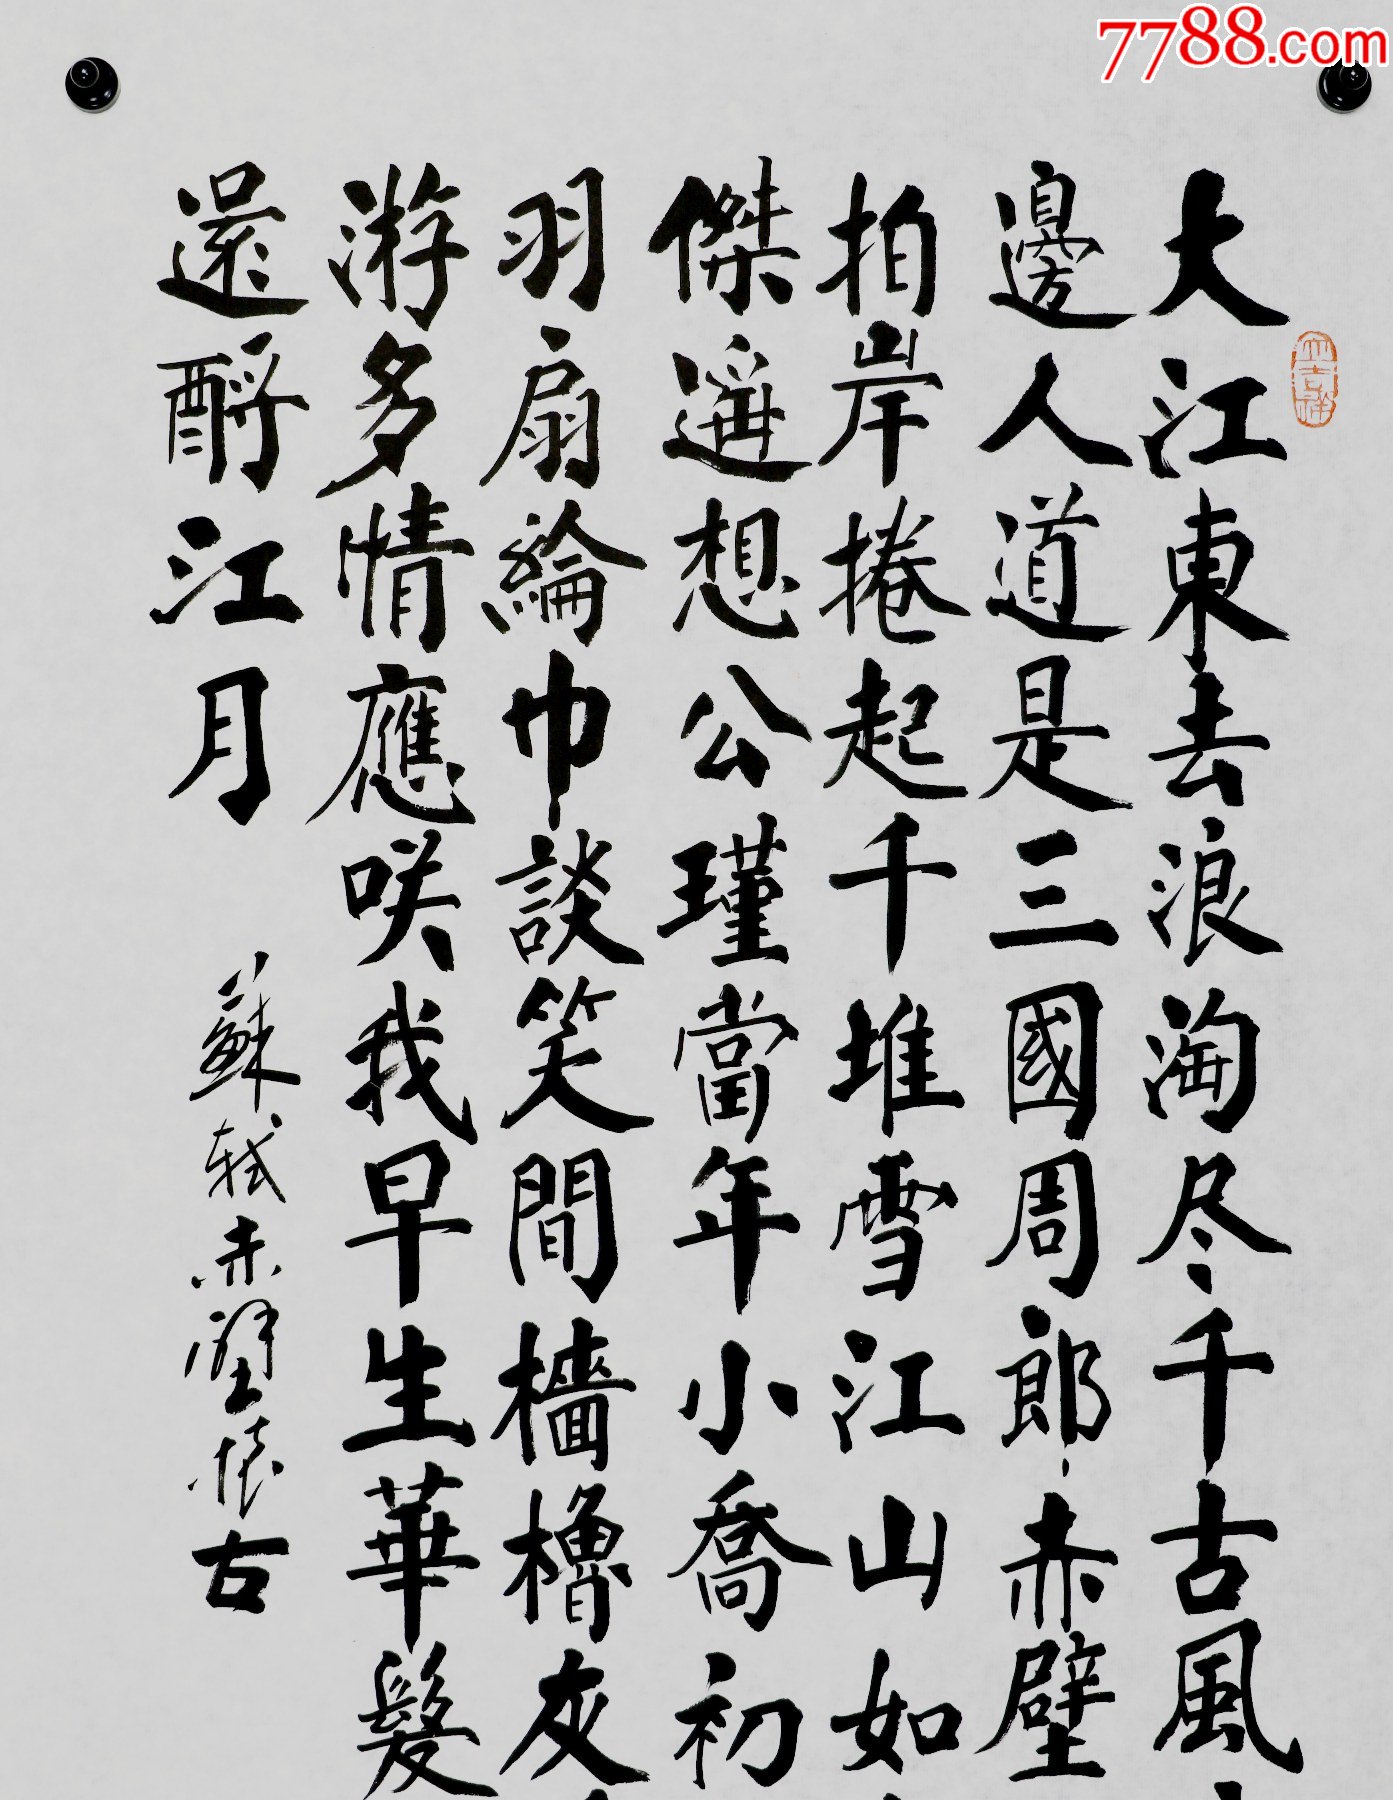 7788.com
大江東去浪淘尽千古風
邊人道是三國周郎赤壁
拍岸捲起千堆雪江山如
傑遥想公瑾當年小喬初
羽扇綸巾談笑間檣櫓灰
游多情應咲我早生華髮
還酹江月
蘇軾赤壁懷古